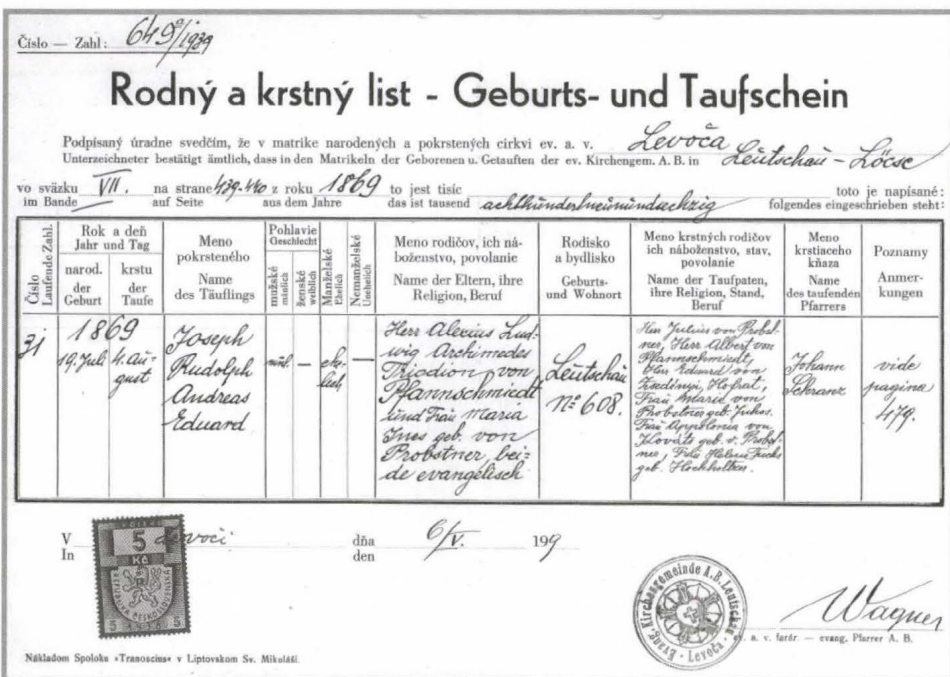 Číslo — Zahl: 649/1939
Rodný a krstný list - Geburts- und Taufschein
Podpísaný úradne svedčím, že v matrike narodených a pokrstených cirkvi ev. a. v. Levoča
Unterzeichneter bestätigt ämtlich, dass in den Matrikeln der Geborenen u. Getauften der ev. Kirchengem. A. B. in Leutschau - Löcse
vo sväzku VII. na strane 439-440 z roku 1869 to jest tisíc toto je napísané:
im Bande auf Seite aus dem Jahre das ist tausend achthundertneunundsechzig folgendes eingeschrieben steht:
Číslo
Laufende Zahl.
Rok a deň
Jahr und Tag
narod.
der
Geburt
krstu
der
Taufe
Meno
pokrsteného
Name
des Täuflings
Pohlavie
Geschlecht
mužské
mänlich
ženské
weiblich
Manželské
Ehelich
Nemanželské
Unehelich
Meno rodičov, ich ná-
boženstvo, povolanie
Name der Eltern, ihre
Religion, Beruf
Rodisko
a bydlisko
Geburts-
und Wohnort
Meno krstných rodičov
ich náboženstvo, stav,
povolanie
Name der Taufpaten,
ihre Religion, Stand,
Beruf
Meno
krstiaceho
kňaza
Name
des taufenden
Pfarrers
Poznamy
Anmer-
kungen
31
1869
19. Juli
4. Au-
gust
Joseph
Rudolph
Andreas
Eduard
—
ehe-
lich
—
Herr Alexius Lud-
wig Archimedes
von
Pfannschmiedt
und Frau Maria
Ines geb. von
Probstner, bei-
de evangelisch
Leutschau
No 608.
Herr Julius von Probst-
ner, Herr Albert von
Pfannschmiedt,
Herr Eduard von
Zsedényi, Hofrat,
Frau Maria von
Probstner geb. Jukos.
Frau Appolonia von
geb. v. Probst-
ner, Frau Helene Fuchs
geb.
Johann
Schranz
vide
pagina
479.
V Levoči dňa 6/V. 1999
In den
5
Kč
REPUBLIKA ČESKOSLOVENSKÁ
5 5
Evang. Kirchengemeinde A.B. Leutschau
Levoča
Wagner
a. v. farár — evang. Pfarrer A. B.
Nákladom Spolku «Tranoscius» v Liptovskom Sv. Mikuláši.